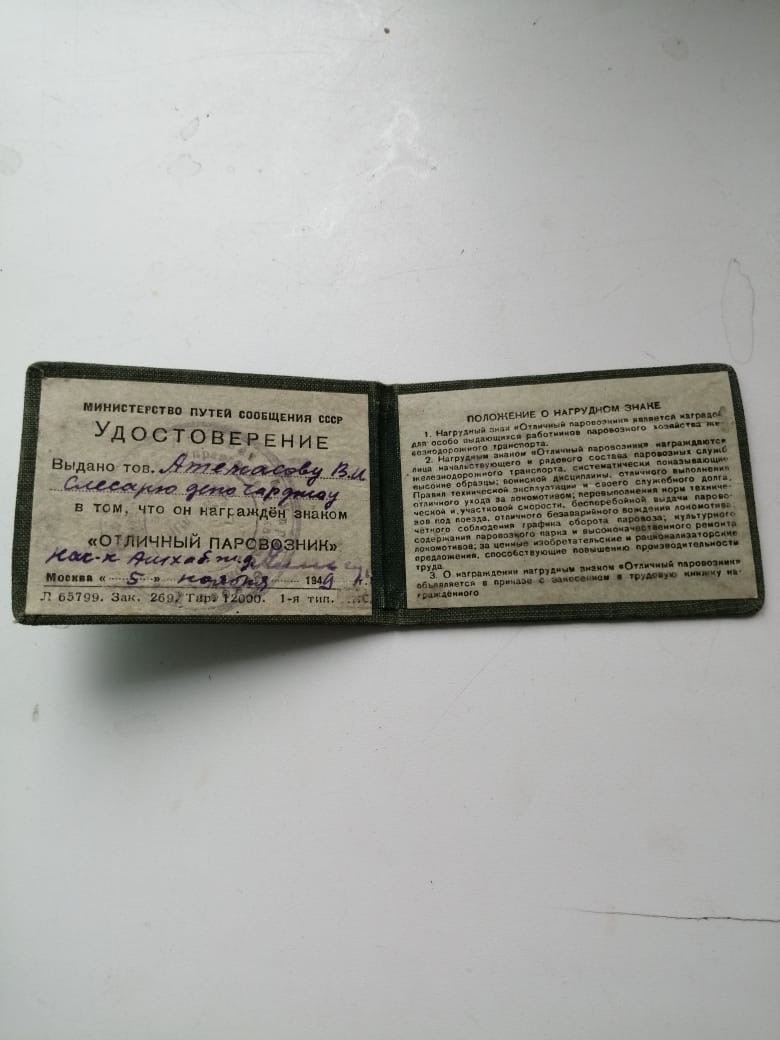 МИНИСТЕРСТВО ПУТЕЙ СООБЩЕНИЯ СССР
УДОСТОВЕРЕНИЕ
Выдано тов. В.И
Слесарю депо Чарджоу
в том, что он награждён знаком
«ОТЛИЧНЫЙ ПАРОВОЗНИК»
Нач-к Ашхаб. ж.д.
Москва « 5 » ноября 1949 г.
Л 65799. Зак. 269. Тир. 12000. 1-я тип.
ПОЛОЖЕНИЕ О НАГРУДНОМ ЗНАКЕ
1. Нагрудный знак «Отличный паровозник» является наградой
для особо выдающихся работников паровозного хозяйства же-
лезнодорожного транспорта.
2. Нагрудным знаком «Отличный паровозник» награждаются
лица начальствующего и рядового состава паровозных служб
железнодорожного транспорта, систематически показывающие
высокие образцы: воинской дисциплины, отличного выполнения
Правил технической эксплуатации и своего служебного долга,
отличного ухода за локомотивом; перевыполнения норм техниче-
ской и участковой скорости, бесперебойной выдачи парово-
зов под поезда, отличного безаварийного вождения локомотива;
чёткого соблюдения графика оборота паровоза; культурного
содержания паровозного парка и высококачественного ремонта
локомотивов; за ценные изобретательские и рационализаторские
предложения, способствующие повышению производительности
труда.
3. О награждении нагрудным знаком «Отличный паровозник»
объявляется в приказе с занесением в трудовую книжку на-
граждённого